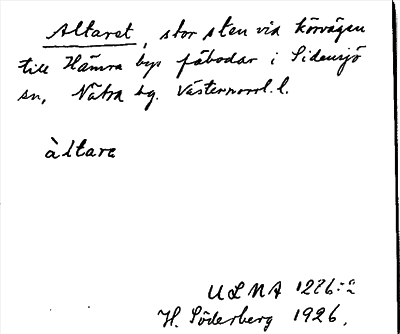 Altaret, stor sten vid körvägen
till Hämra bys fäbodar i Sidensjö
sn, Nätra hg. Västernorrl. l.
àltare
ULMA 1226:2
H. Söderberg 1926.